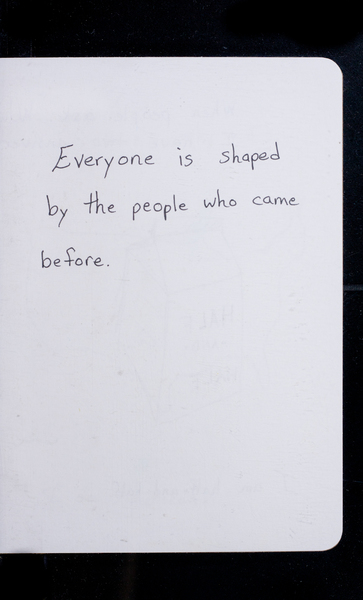 Everyone is shaped
by the people who came
before.